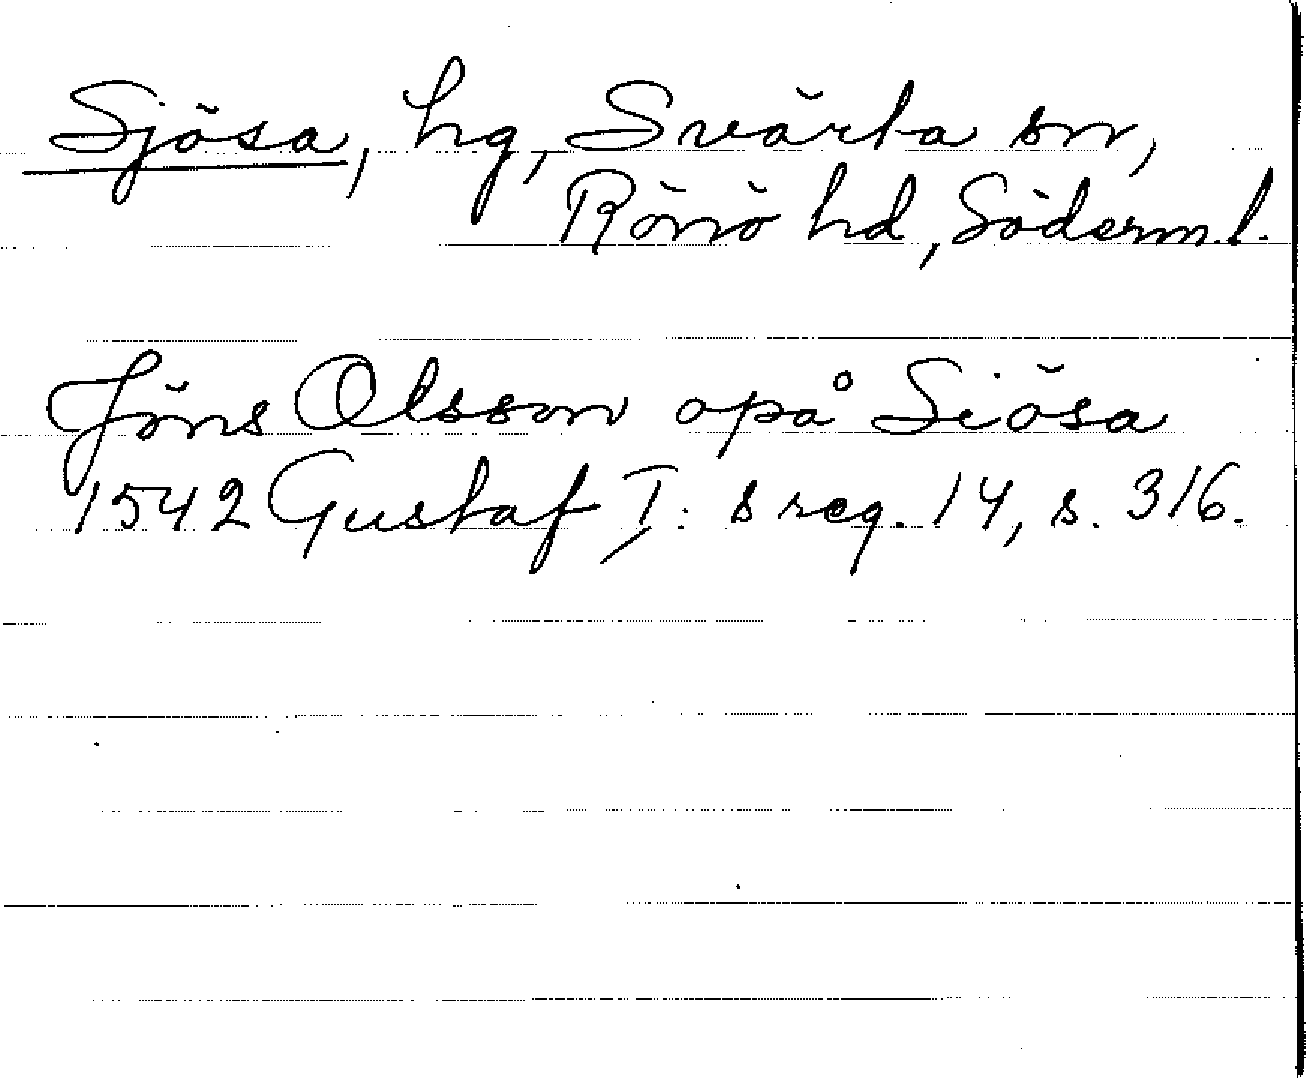 Sjösa, hg, Svärta sn,
Rönö hd, Söderm.l.
Jöns Olsson opå Siösa
1542 Gustaf I: s reg. 14, s. 316.